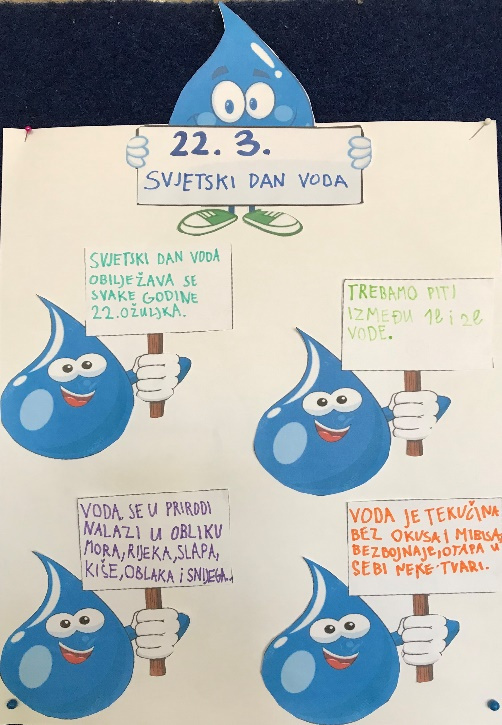 22. 3.
SVJETSKI DAN VODA
SVJETSKI DAN VODA
OBILJEŽAVA SE
SVAKE GODINE
22.OŽUJKA.
TREBAMO PITI
IZMEĐU 1l i 2l
VODE.
VODA SE U PRIRODI
NALAZI U OBLIKU
MORA, RIJEKA, SLAPA,
KIŠE, OBLAKA i SNIJEGA...
VODA JE TEKUĆINA
BEZ OKUSA I MIRISA,
BEZBOJNA JE, OTAPA U
SEBI NEKE TVARI.